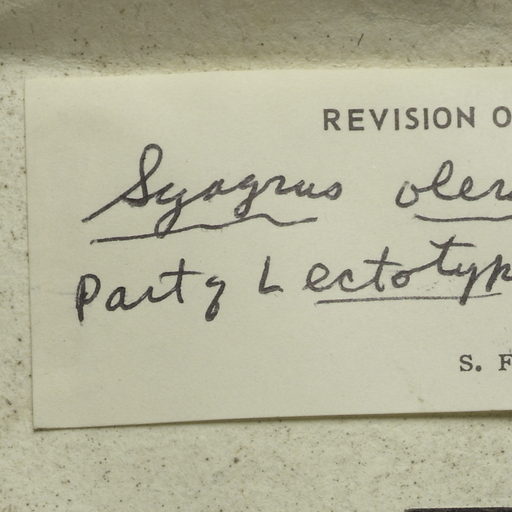 REVISION O
Syagrus oler
Part of Lectotyp
S. F